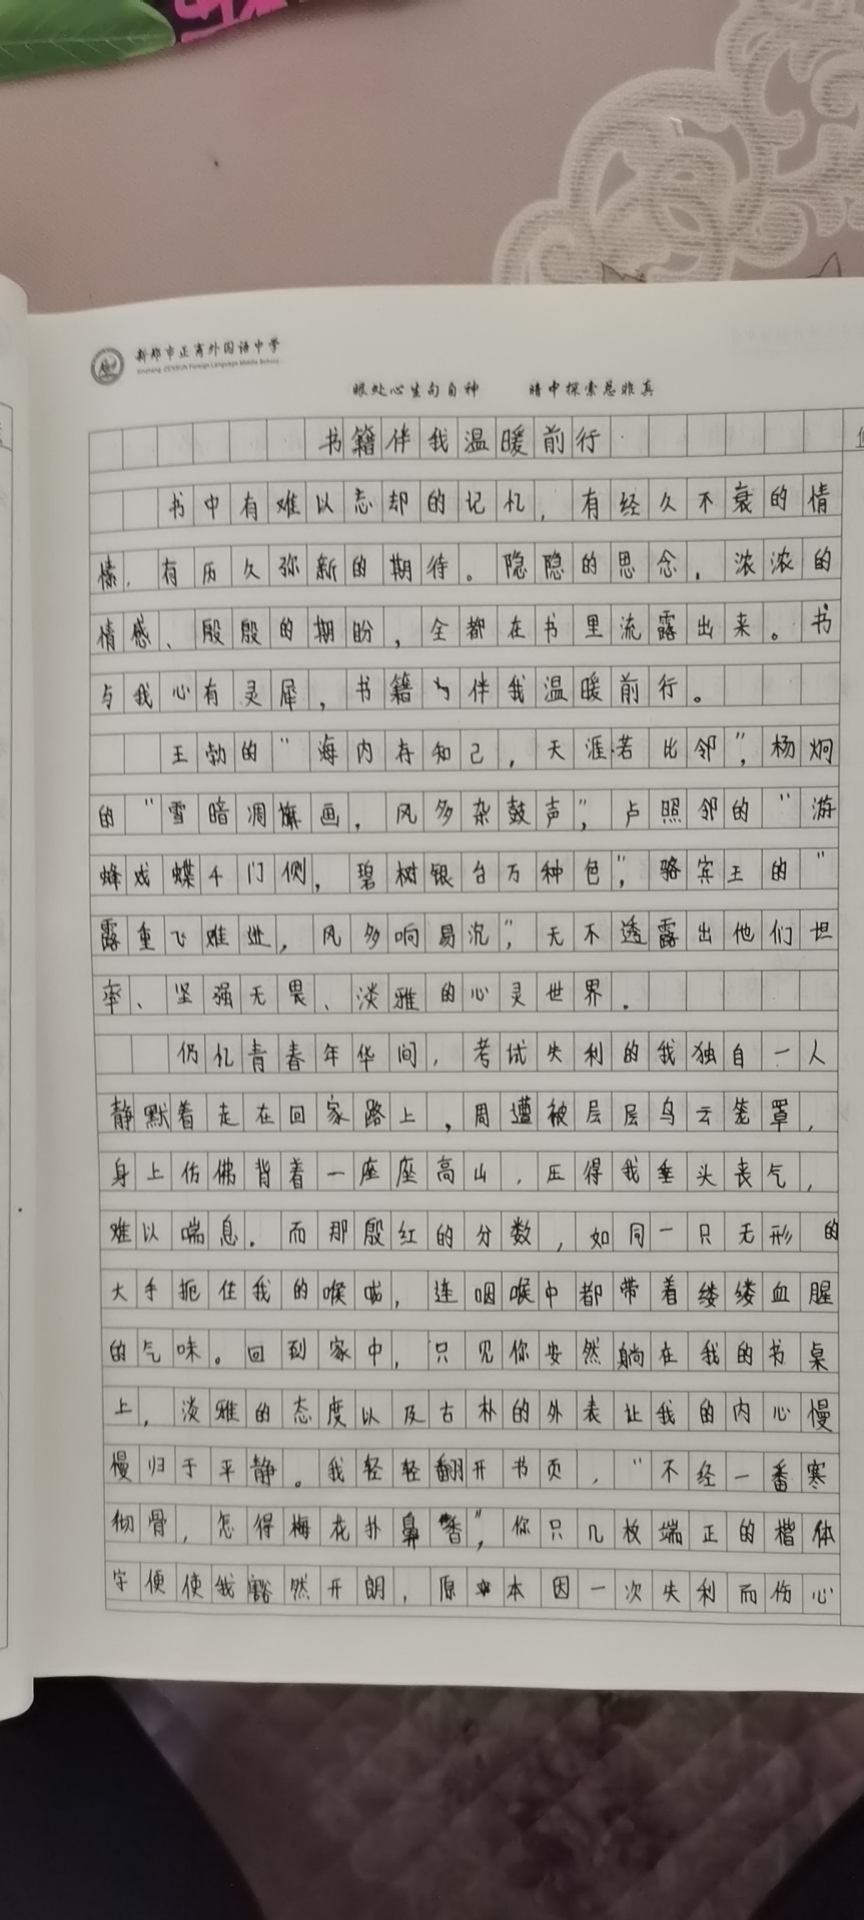 新郑市正商外国语中学
眼处心生句自神 暗中探索总非真
书籍伴我温暖前行
书中有难以忘却的记忆，有经久不衰的情
愫，有历久弥新的期待。隐隐的思念，浓浓的
情感、殷殷的期盼，全都在书里流露出来。书
与我心有灵犀，书籍伴我温暖前行。
王勃的“海内存知己，天涯若比邻”，杨炯
的“雪暗凋旗画，风多杂鼓声”，卢照邻的“游
蜂戏蝶千门侧，碧树银台万种色”，骆宾王的“
露重飞难进，风多响易沉”，无不透露出他们坦
率、坚强无畏、淡雅的心灵世界。
仍忆青春年华间，考试失利的我独自一人
静默着走在回家路上，周遭被层层乌云笼罩，
身上仿佛背着一座座高山，压得我垂头丧气，
难以喘息。而那殷红的分数，如同一只无形的
大手扼住我的喉咙，连咽喉中都带着缕缕血腥
的气味。回到家中，只见你安然躺在我的书桌
上，淡雅的态度以及古朴的外表让我的内心慢
慢归于平静。我轻轻翻开书页，“不经一番寒
彻骨，怎得梅花扑鼻香”，你只几枚端正的楷体
字便使我豁然开朗，原本因一次失利而伤心